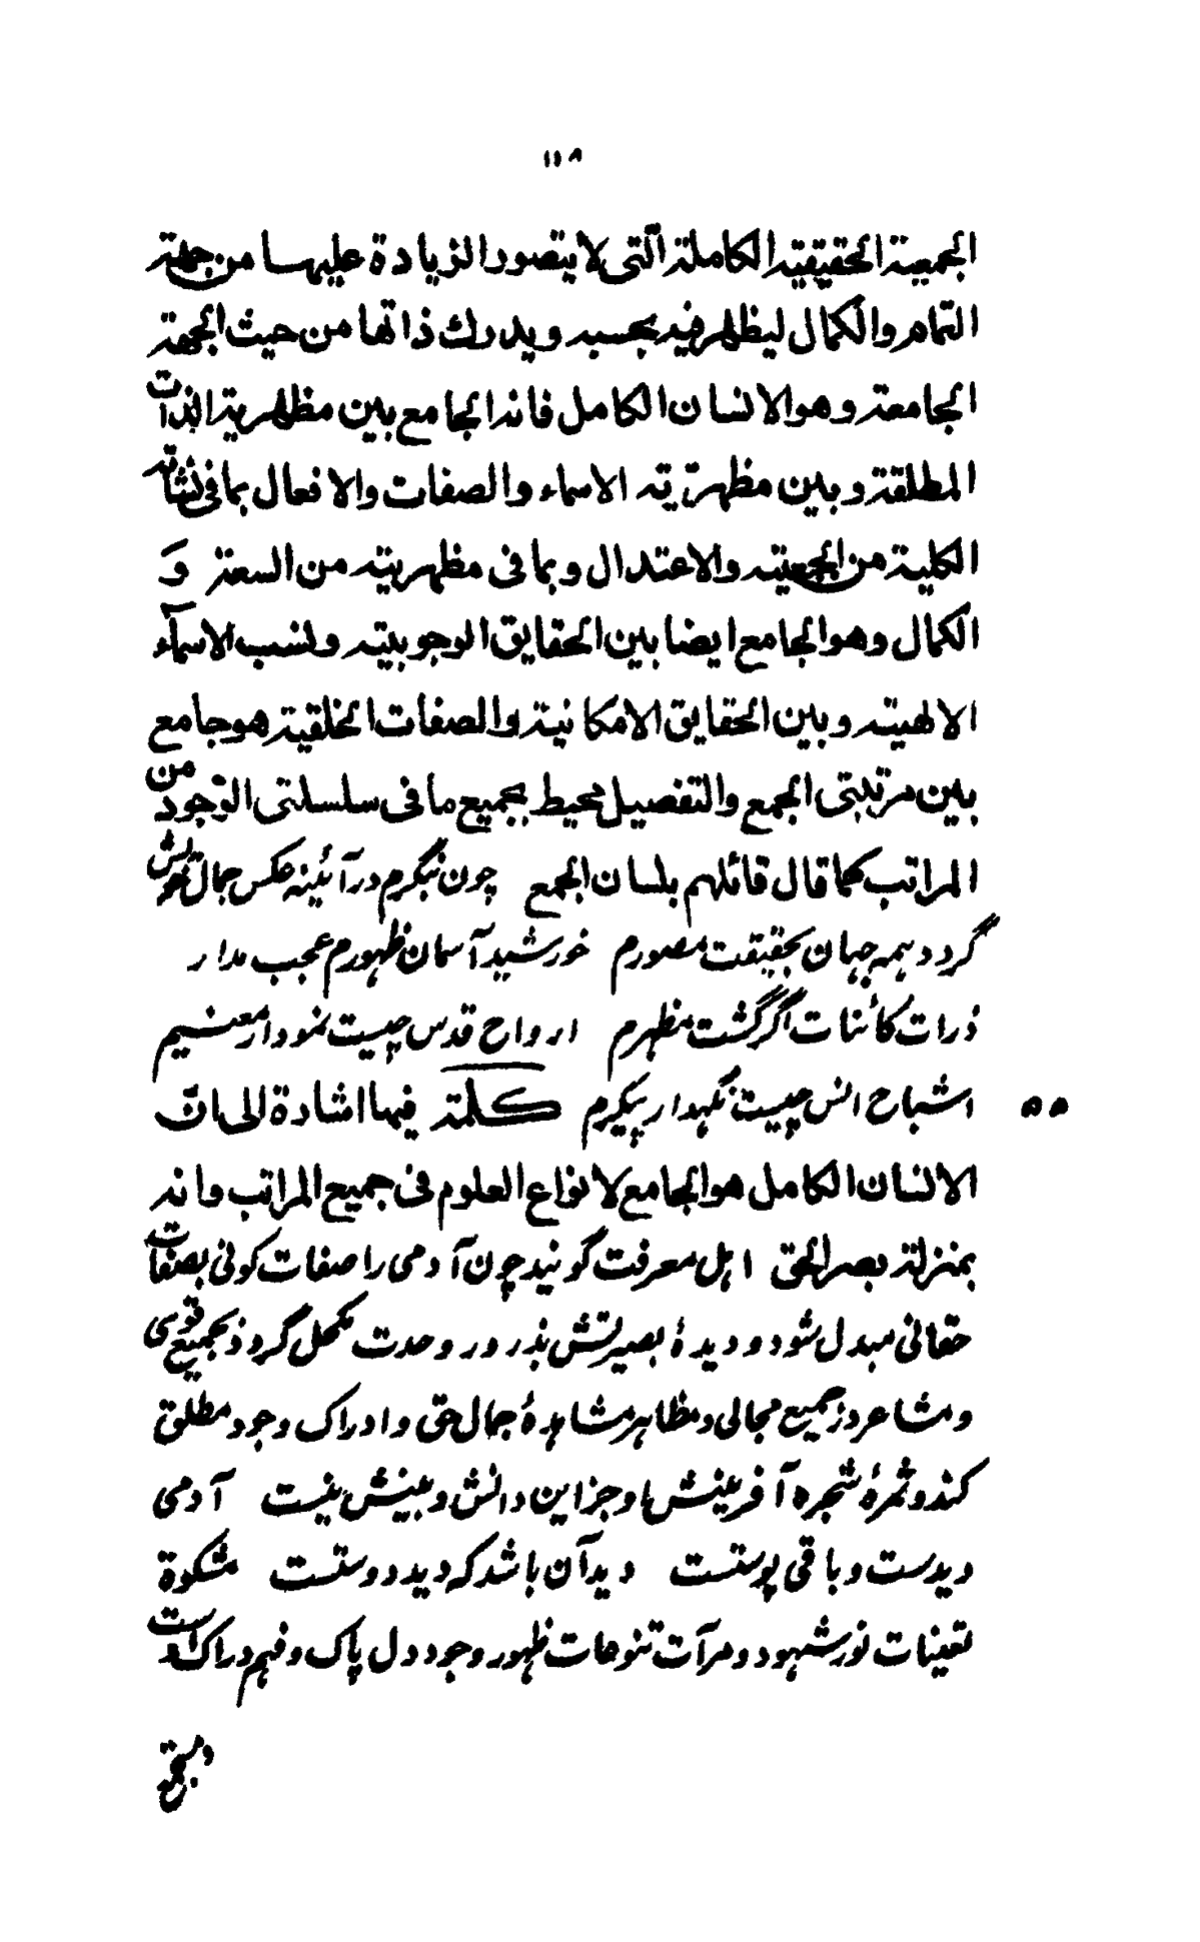 ١١٨
الجمعية الحقيقية الكاملة الّتى لا يتصور الزيادة عليها من جهة
التمام والكمال ليظهر فيه بحسبه ويدرك ذاتها من حيث الجهة
الجامعة وهو الانسان الكامل فانه الجامع بين مظهرية الذات
المطلقة وبين مظهرية الاسماء والصفات والافعال بما فى نشأته
الكلية من الجمعية والاعتدال وبما فى مظهريته من السعة و
الكمال وهو الجامع ايضا بين الحقايق الوجوبية ونسب الاسمآء
الالهية وبين الحقايق الامكانية والصفات الخلقية هو جامع
بين مرتبتى الجمع والتفصيل محيط بجميع ما فى سلسلتى الوجود من
المراتب كما قال قائلهم بلسان الجمع چون بنگرم در آئينه عكس جمال خويش
گردد همه جهان بحقيقت مصورم خورشيد آسمان ظهورم عجب مدار
ذرات كائنات اگر گشت مظهرم ارواح قدس چيست نمودار معنيم
اشباح انس چيست نگهدار پيكرم كلمة فيها اشادة الى ان
۵۵
الانسان الكامل هو الجامع لانواع العلوم فى جميع المراتب وانه
بمنزلة بصر الحق اهل معرفت گويند چون آدمى را صفات كونى بصفات
حقانى مبدل شود و ديدهٔ بصيرتش بذرور وحدت مكحل گردد بجميع قوى
و مشاعر در جميع مجالى و مظاهر مشاهدهٔ جمال حق و ادراك وجود مطلق
كند و ثمرهٔ شجره آفرينش او جز اين دانش و بينش نيست آدمى
ديدست و باقى پوستست ديد آن باشد كه ديد دوستست مشكوة
تعينات نور شهود و مرآت تنوعات ظهور وجود دل پاك و فهم دراك است